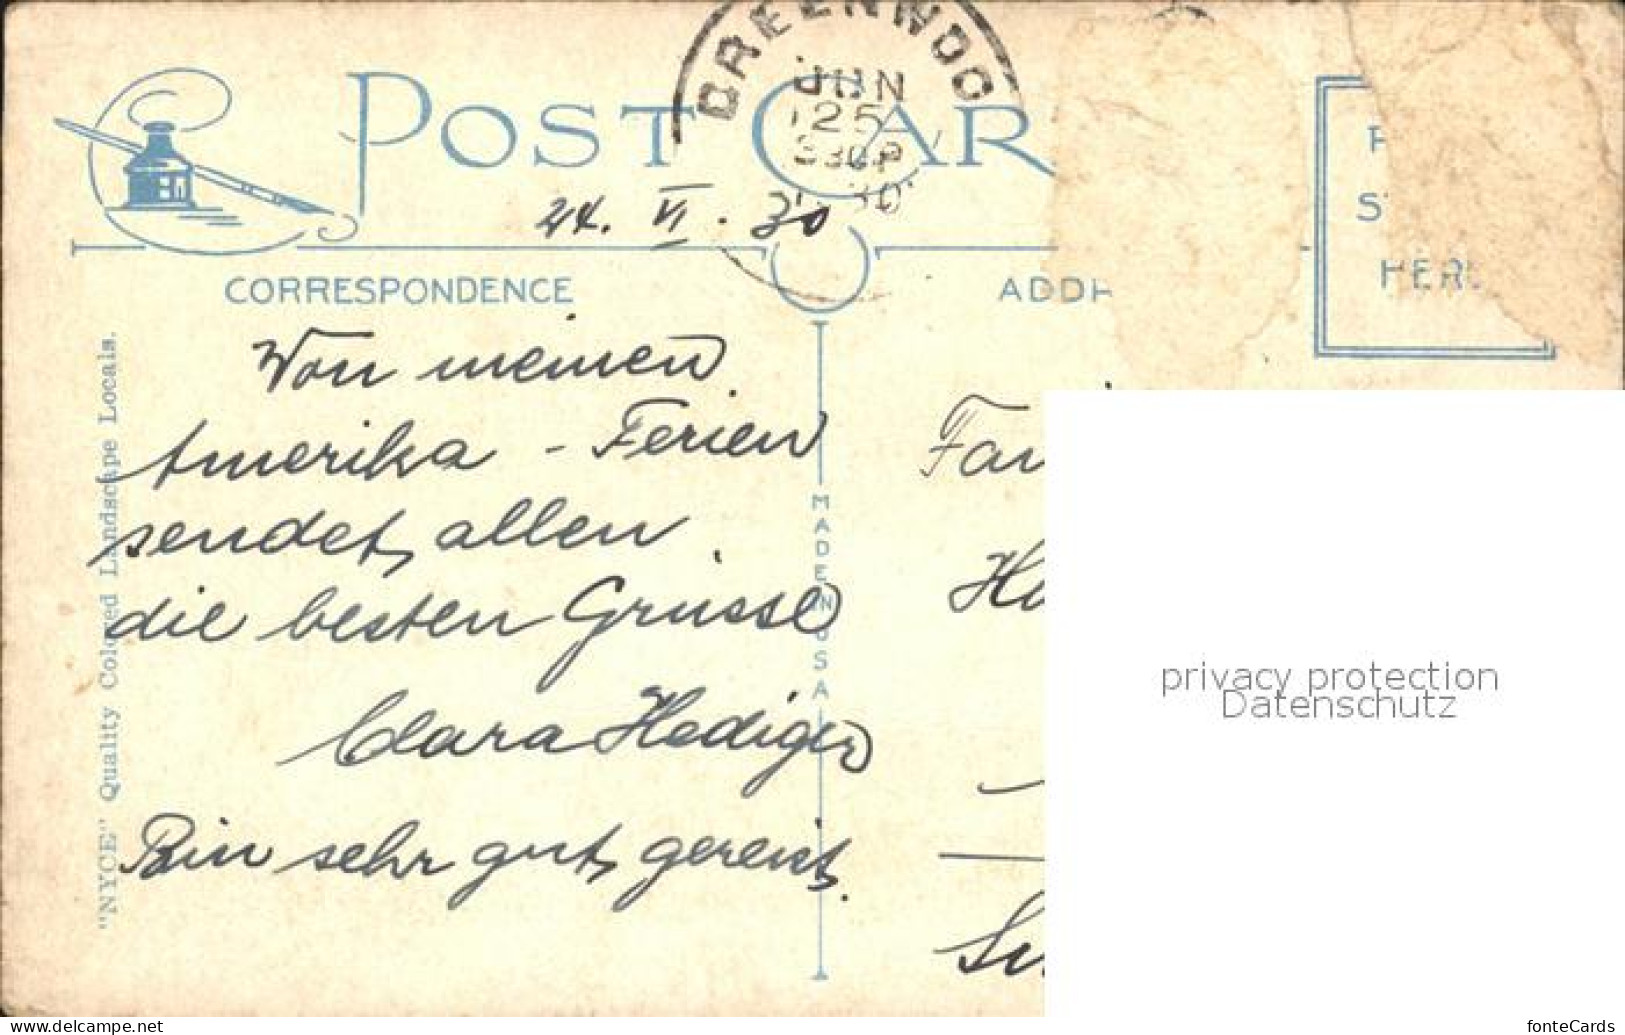 GREENWOO
JUN
25
330P
POST CAR
24. VI. 30
CORRESPONDENCE
ADD
HERE
Von meinen
Amerika - Ferien
sendet allen
die besten Grüsse
Clara Hediger
Bin sehr gut gereist.
MADE IN USA
"NYCE" Quality Colored Landscape Locals.
privacy protection
Datenschutz
www.delcampe.net
fonteCards